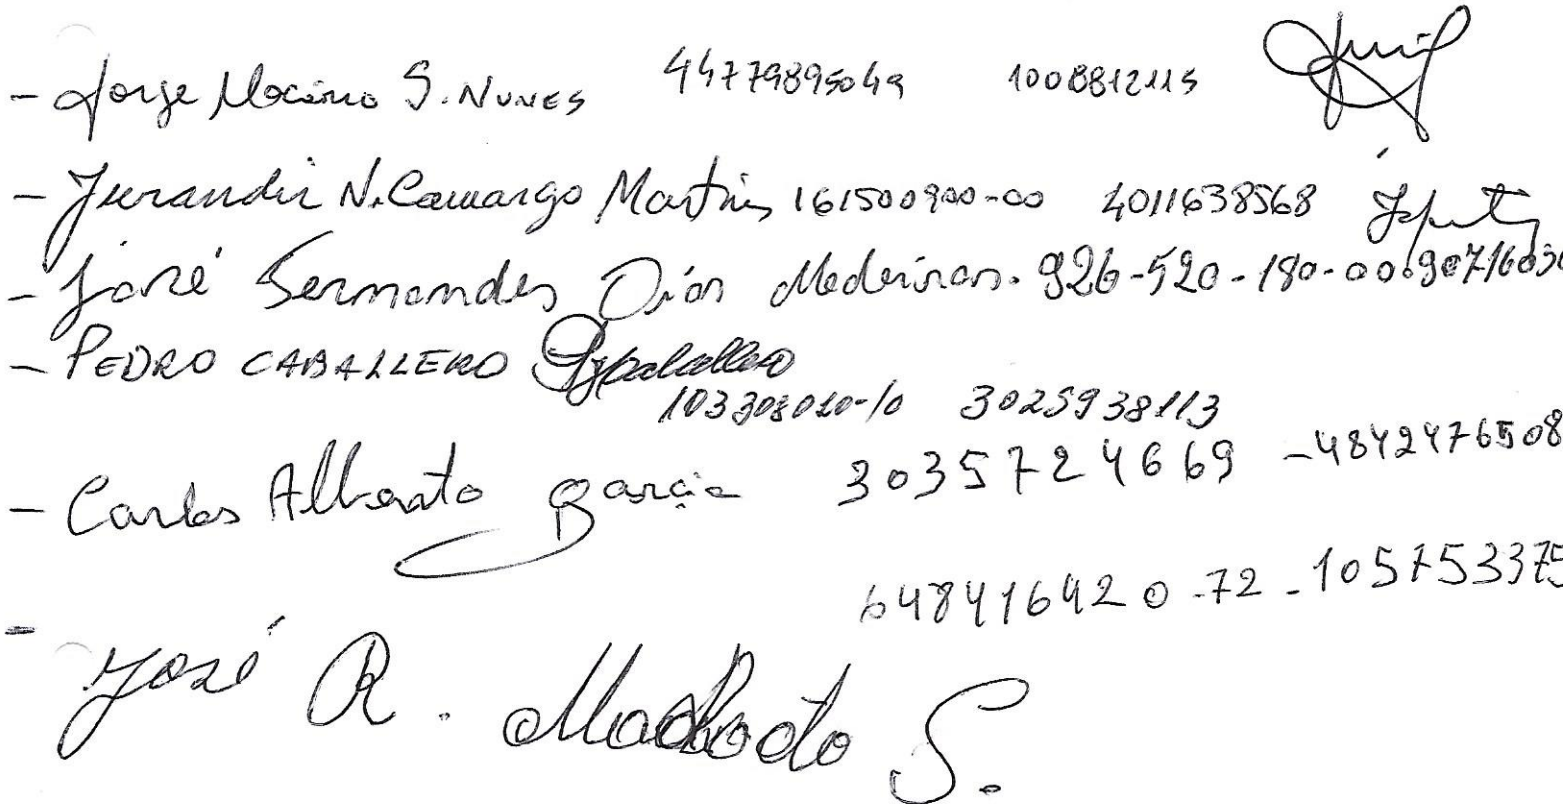 - Jorge Macário S. NUNES 44779895049 1008812115
- Jurandir N. Camargo Martins 161500900-00 4011638568
- José Fernandes Dias Medeiros. 926-520-180-00
- PEDRO CABALLERO
103308010-10 3025938113
- Carlos Alberto Garcia 3035724669 -4842476508
648416420-72-105753375
- José R. Machado S.